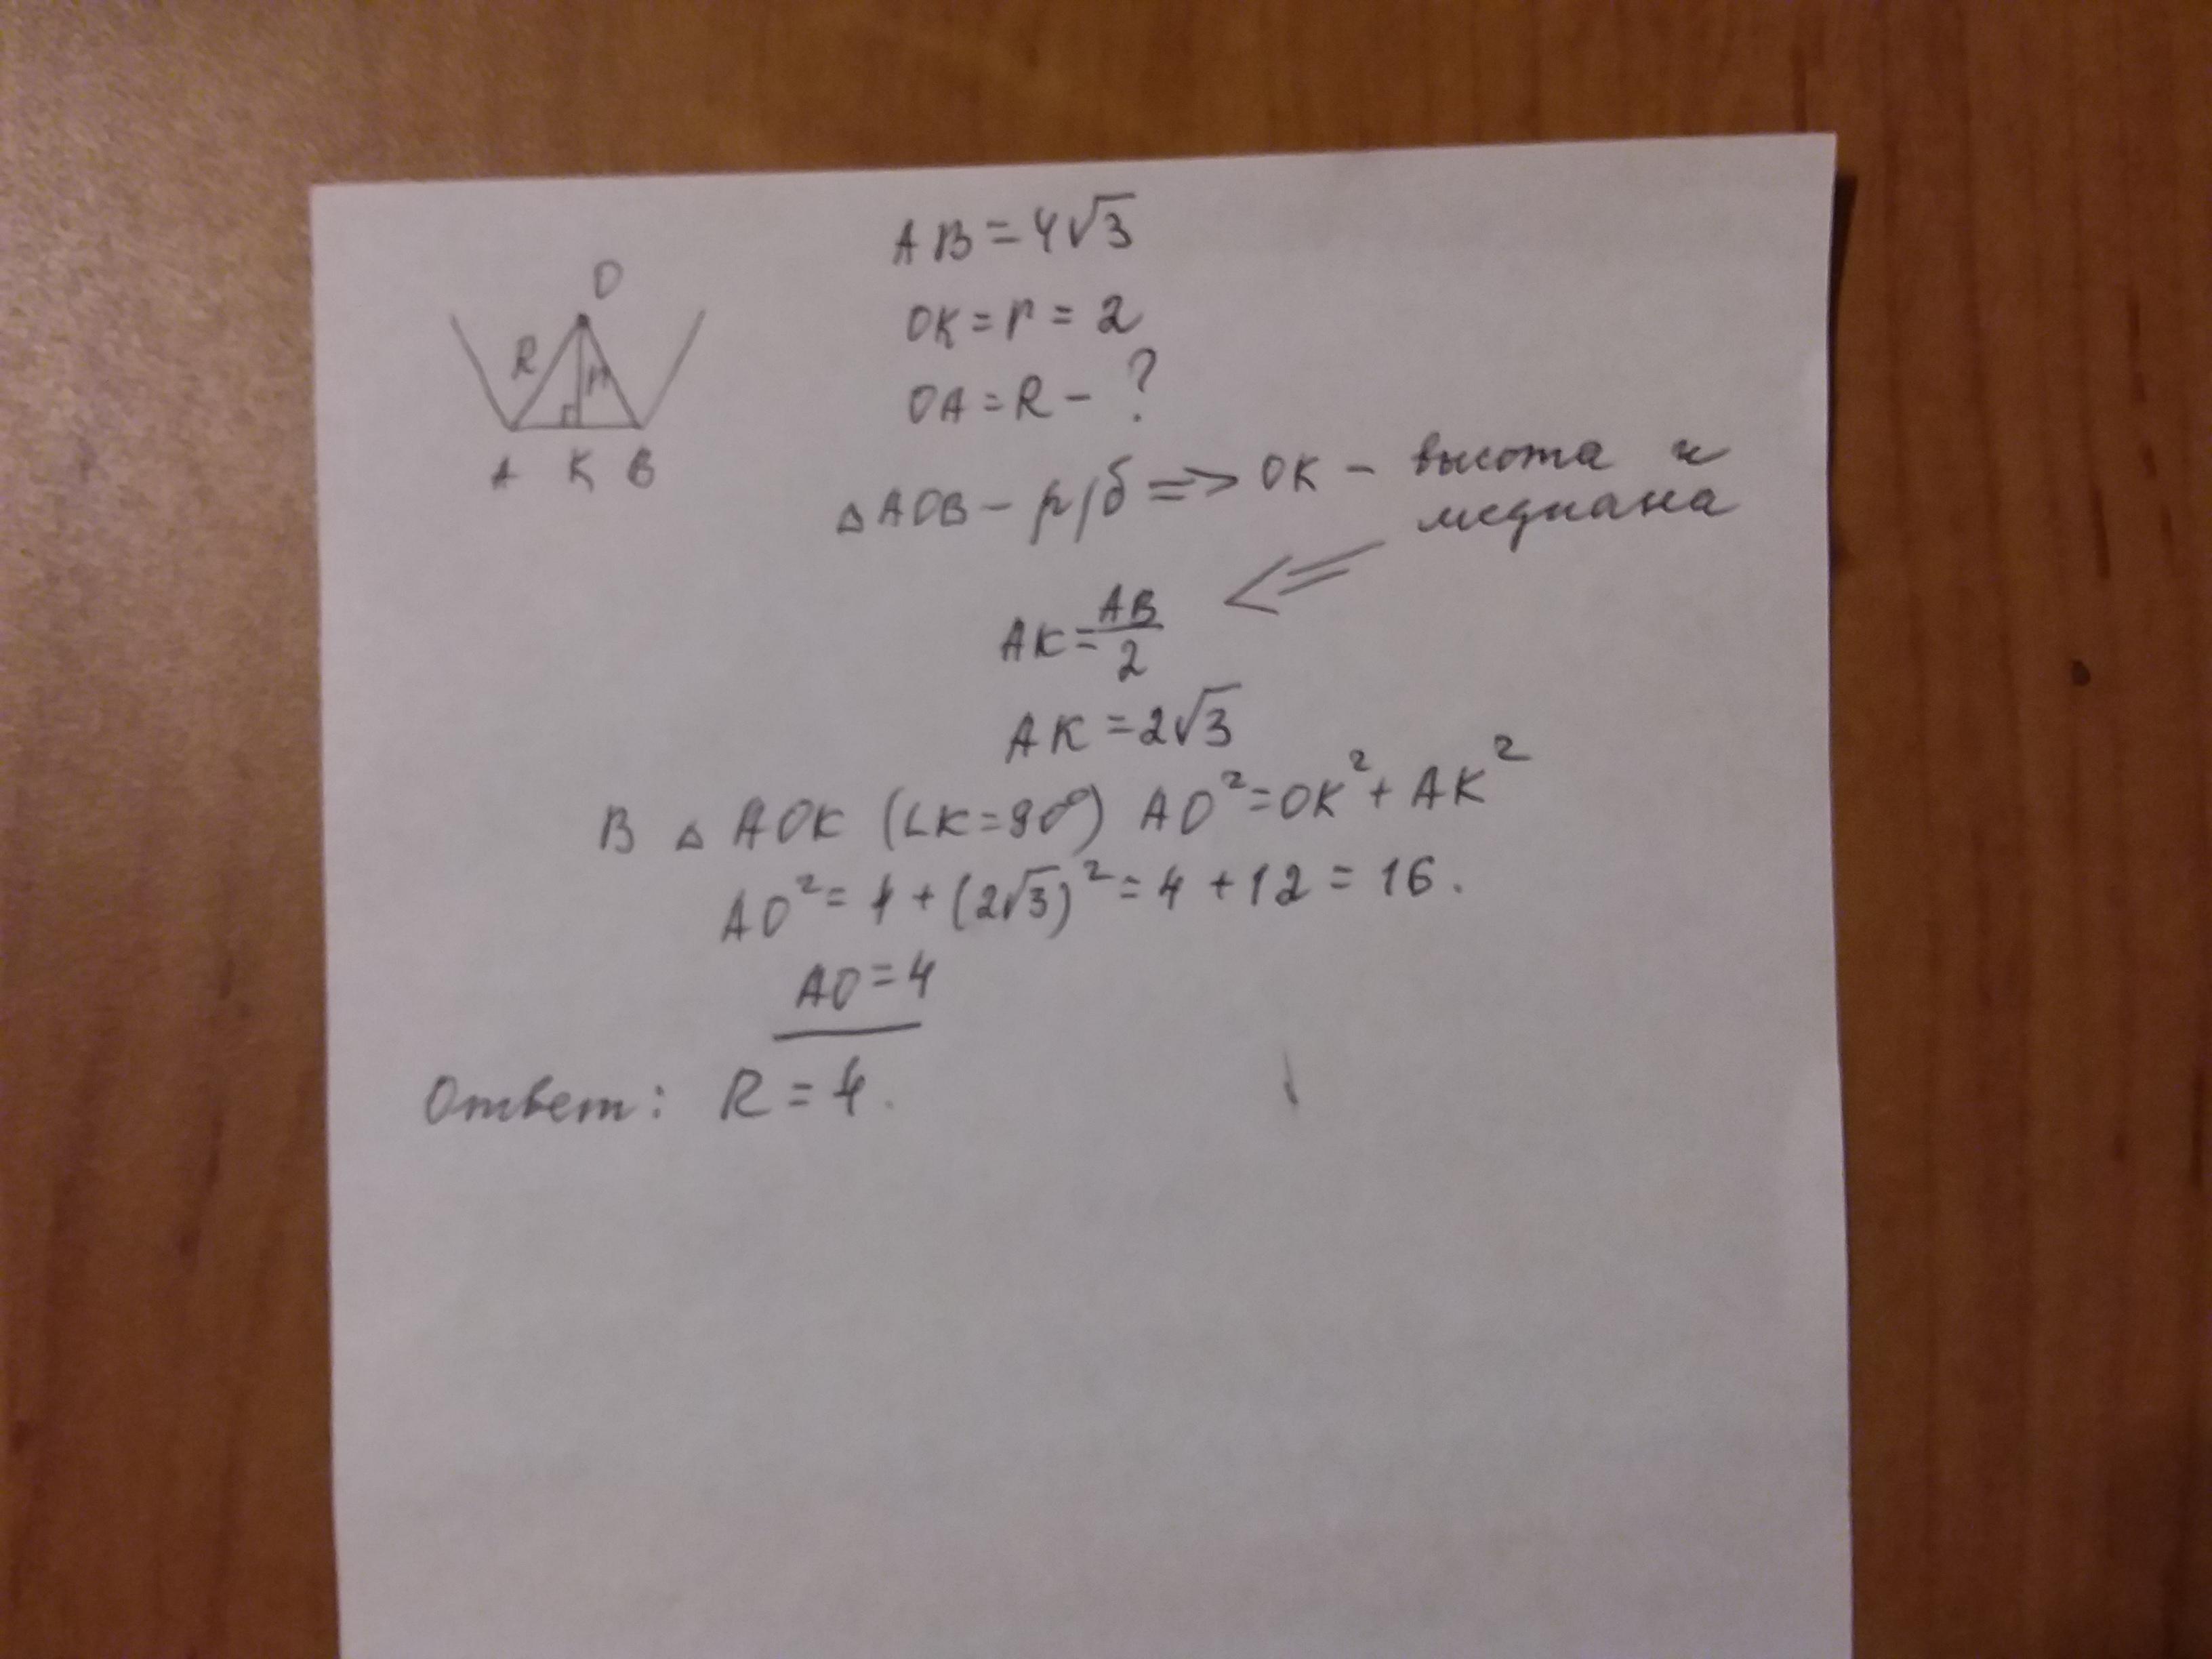 AB = 4√3
O
OK = r = 2
R
r
OA = R - ?
A K B
△AOB - р/б => OK - высота и
медиана
<=
AK = AB/2
AK = 2√3
В △ AOK (∠K = 90°) AO² = OK² + AK²
AO² = 4 + (2√3)² = 4 + 12 = 16.
AO = 4
Ответ: R = 4.